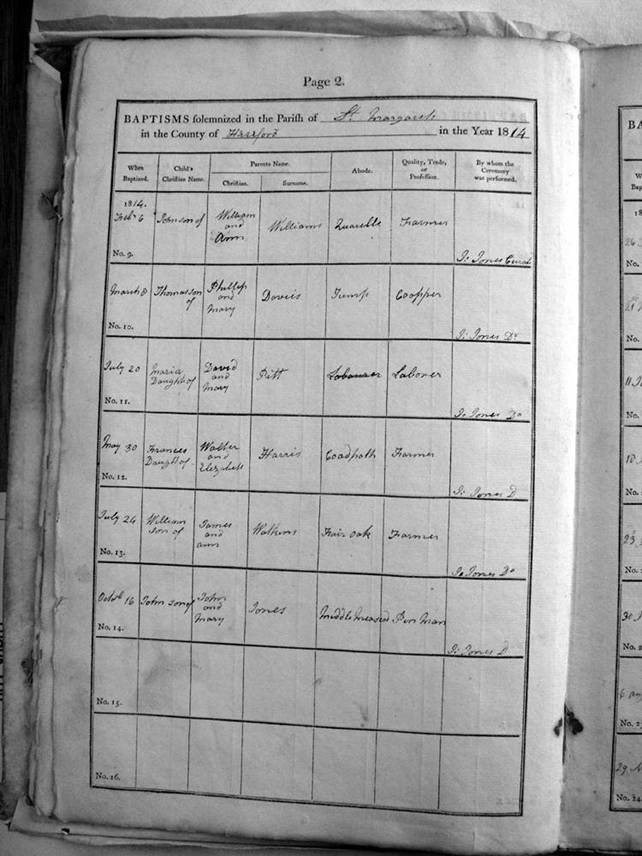 Page 2.
BAPTISMS solemnized in the Parish of St. Margarets
in the County of Hereford in the Year 1814
When Baptized. Child's Christian Name. Parents Name. Abode. Quality, Trade, or Profession. By whom the Ceremony was performed.
Christian. Surname.
1814.
Feb 6 John son of William and Ann Williams Farmer
No. 9. J: Jones Curat
March 8 Thomas son of Phillip and Mary Davies Tump Coopper
No. 10. J: Jones Do
July 20 Maria Daught of David and Mary Pitt Labourer Laborer
No. 11. J: Jones Do
May 30 Frances Daught of Walter and Elizabeth Harris Farmer
No. 12. J: Jones D
July 24 William son of James and Ann Watkins Fair oak Farmer
No. 13. J: Jones Do
Octob 16 John son of John and Mary Jones
No. 14. J: Jones D
No. 15.
No. 16.